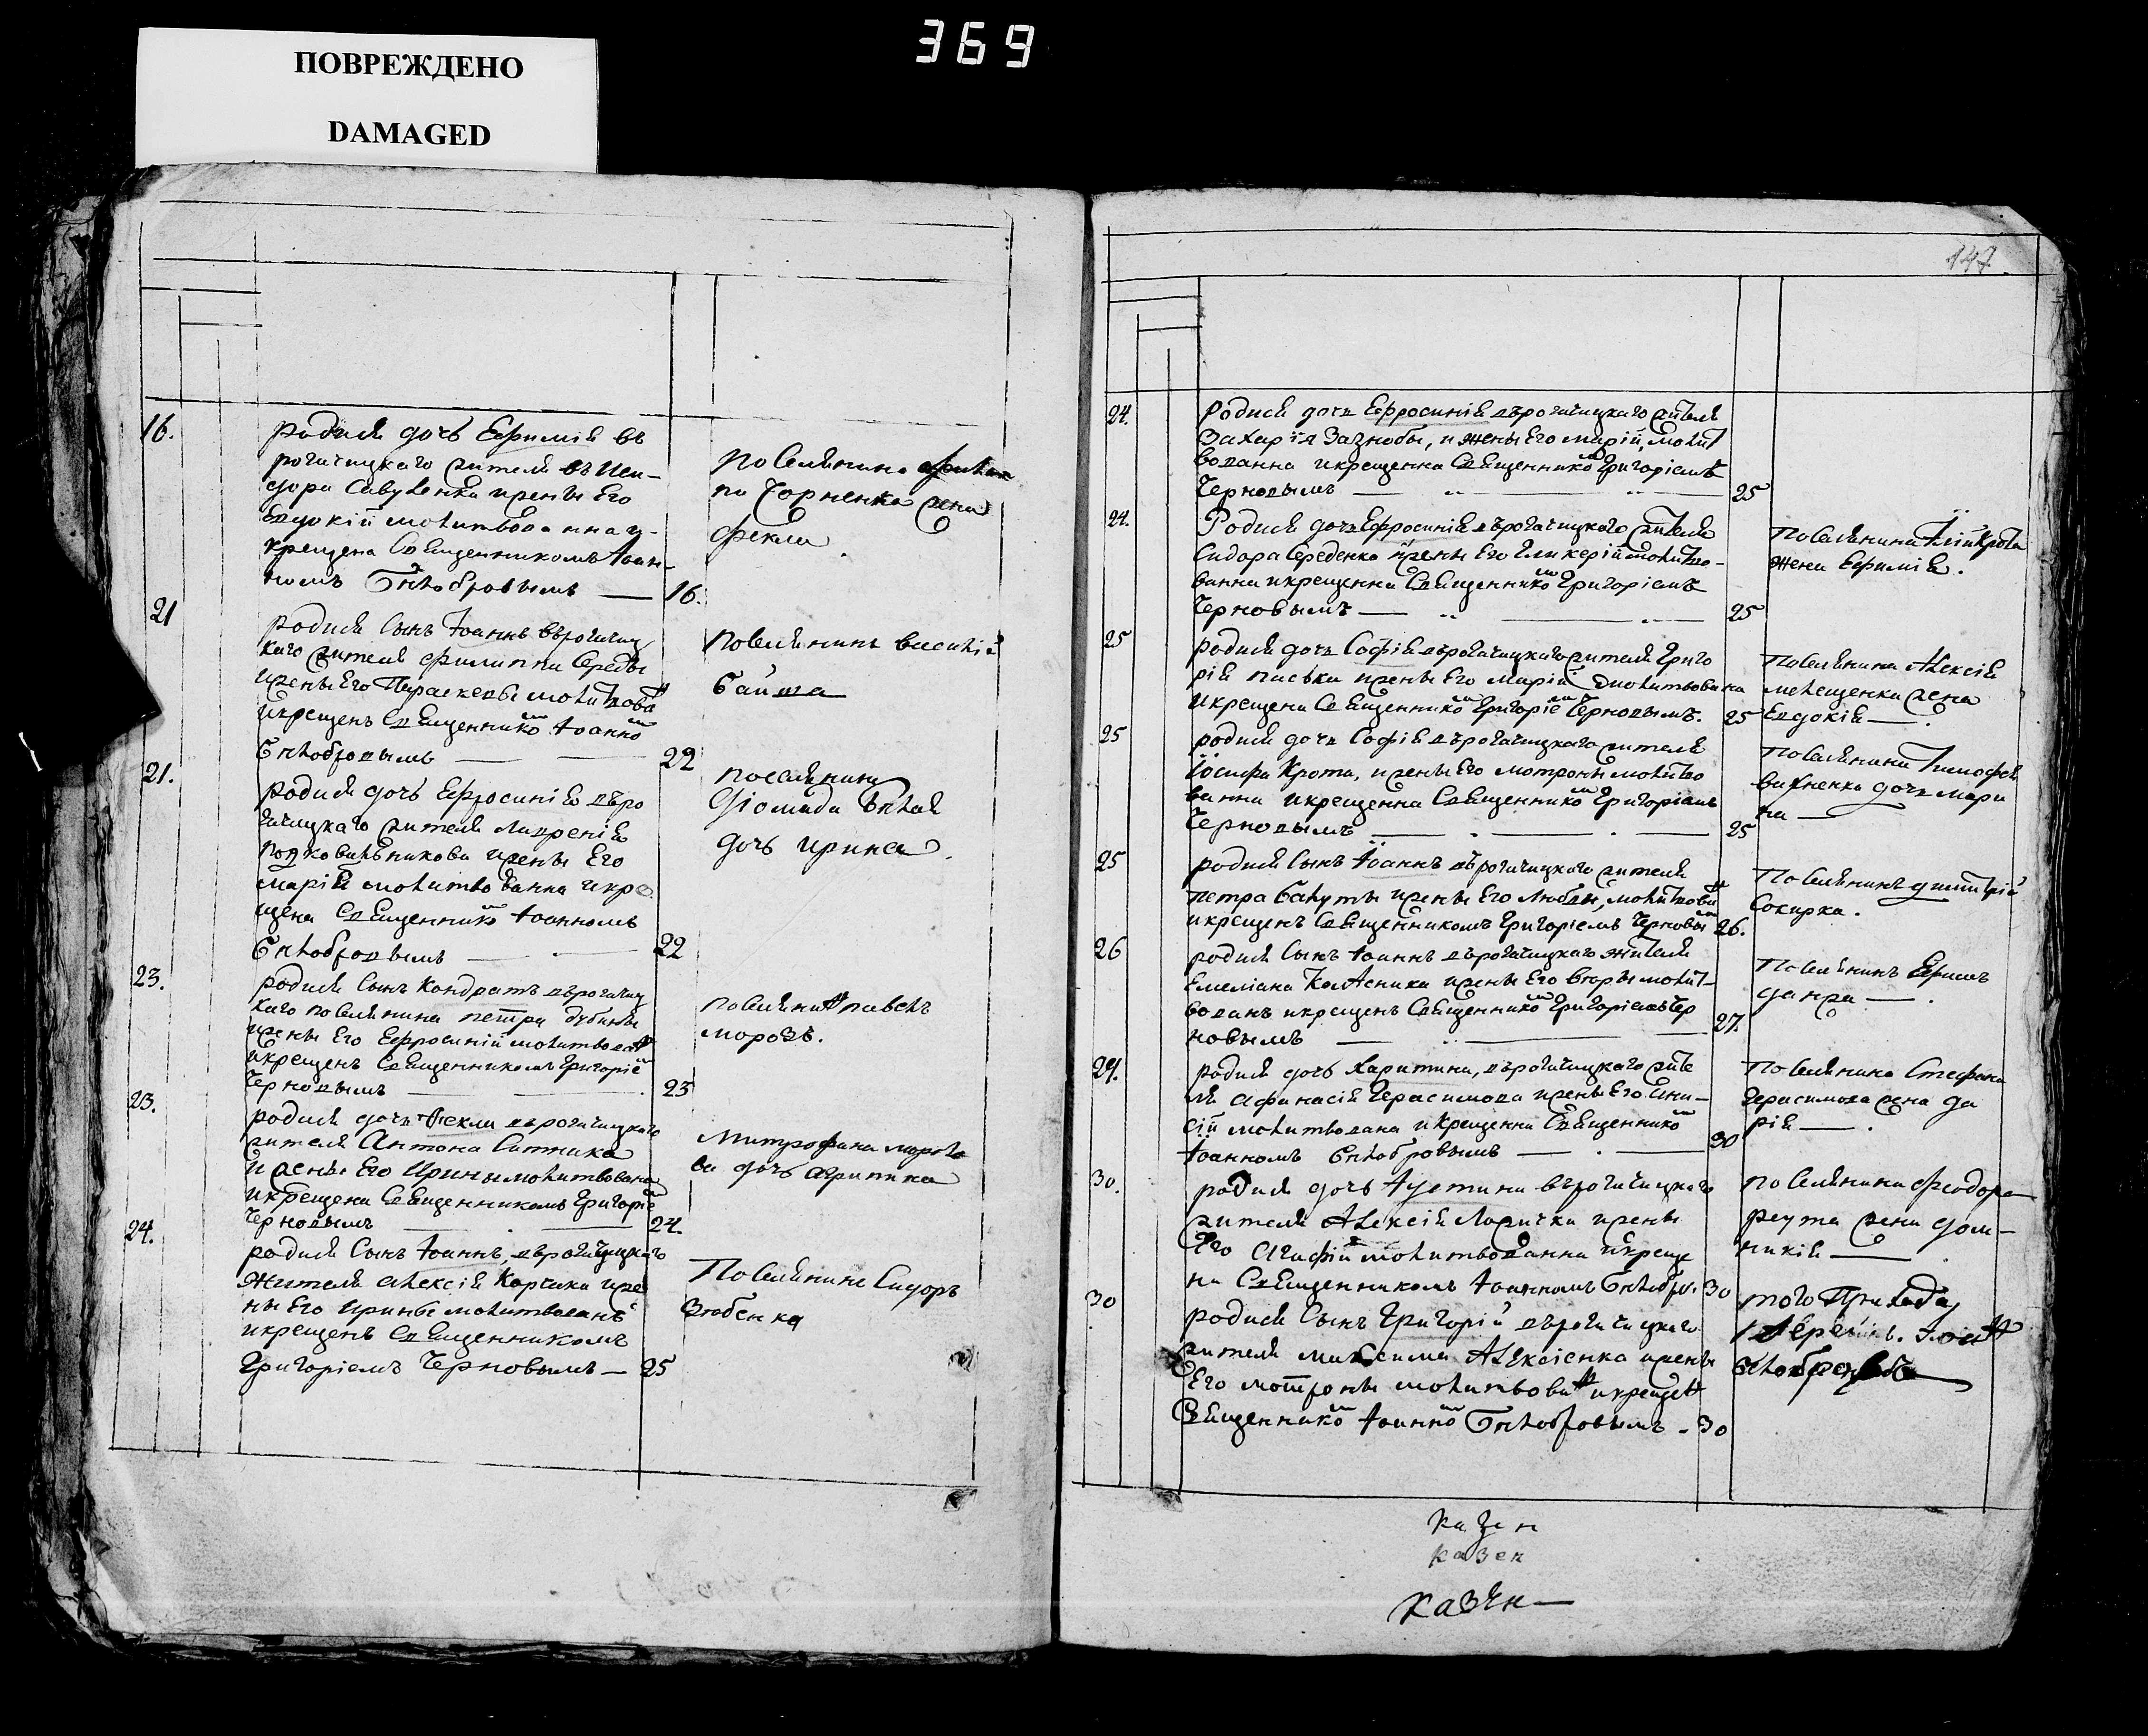 ПОВРЕЖДЕНО
DAMAGED
369
147
16.
родися дочь Ефимія въ
рогачицкаго жителя
Савуленка и жены Его
Евдокіи молитвована и
крещена Священникомъ Іоан-
номъ Бѣлобровымъ — 16.
Поселянина
Чорненка жена
Фекла
21
родися Сынъ Іоаннъ въ рогачиц
каго жителя Филиппа Середы
и жены Его Параскевы молитвован
и крещенъ Священником Іоанном
Бѣлобровымъ — 22
поселянинъ василій
Байша
21.
родися дочь Ефросинія въ ро
гачицкаго жителя Лаврентія
и жены Его
маріи молитвованна и кре
щена Священником Іоанномъ
Бѣлобровымъ — 22
поселянина
дочь ирина
23.
родися Сынъ Кондратъ въ рогачиц
каго поселянина петра дубины
и жены Его Ефросиніи молитвован
и крещенъ Священникомъ Григоріем
Черновымъ — 23
поселянин павелъ
морозъ.
23.
родися дочь Фекла въ рогачицкаго
жителя Антона Ситника
и жены Его Ирины молитвована
и крещена Священникомъ Григоріем
Черновымъ — 24.
Митрофана мороза
дочь агрипина
24.
родися Сынъ Іоаннъ, въ рогачицкаго
жителя алексія Корчика и же
ны Его ирины молитвованъ
и крещенъ Священникомъ
Григоріемъ Черновымъ — 25
Поселянинъ Сидоръ
Зюбенко
24.
родися дочь Ефросинія въ рогачицкаго жителя
Захарія Зазнобы, и жены Его маріи, молит
вованна и крещенна Священником Григоріемъ
Черновымъ — 25
24.
Родися дочь Ефросинія въ рогачицкаго жителя
Сидора Середенко и жены Его Гликеріи молитво-
ванна и крещенна Священником Григоріемъ
Черновымъ — 25
Поселянина Крота
жена Ефимія.
25
родися дочь Софія въ рогачицкаго жителя Григо
рія паська и жены Его маріи молитвована
и крещена Священником Григоріем Черновымъ. 25
Поселянина Алексія
жена
Евдокія —.
25
родися дочь Софія въ рогачицкаго жителя
Іосифа Крота, и жены Его мотроны молитво
ванна и крещенна Священником Григоріемъ
Черновымъ — 25
Поселянина Тимофея
дочь мари
на —
25
родися Сынъ Іоаннъ въ рогачицкаго жителя
петра бакуты и жены Его Любвы, молитвован
и крещенъ Священникомъ Григоріемъ Черновым 26.
Поселянинъ димитрій
Сокирка.
26
родися Сынъ Іоаннъ въ рогачицкаго жителя
Емеліана Колесника и жены Его молит-
вованъ и крещенъ Священником Григоріемъ Чер
новымъ — 27.
Поселянинъ Ефимъ
29.
родися дочь Харитина, въ рогачицкаго жите
ля афанасія Герасимова и жены Его Ени-
сіи молитвована и крещенна Священником
Іоанномъ Бѣлобровымъ — 30
Поселянина Стефана
Герасимова жена да
рія —.
30.
родися дочь Іустина въ рогачицкаго
жителя Алексія и жены
Его агафіи молитвованна и креще
на Священникомъ Іоанномъ Бѣлобро. 30
поселянина феодора
реута жена дом-
никія —
30
родися Сынъ Григорій въ рогачицкаго
жителя максима Алексіенка и жены
Его мотроны молитвован и крещен
Священником Іоанном Бѣлобровымъ - 30
того Прихода
Іерей Іоан
Казен
казен
Казен—